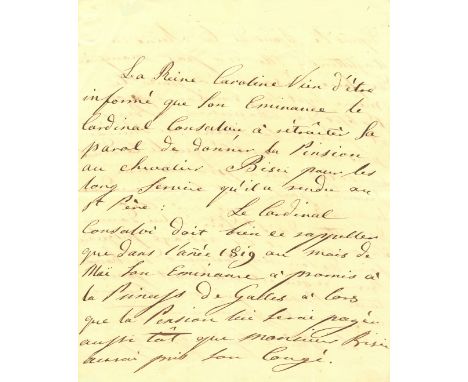 La Reine Caroline Vien d'être
informé que Son Eminance le
Cardinal Consalvi, à rétraiter Sa
parol de donner la Pension
au chevalier Bisii pour les
long Service qu'il a rendu au
St Père : Le Cardinal
Consalvi doit bien ce rappeller
que dans l'anée 1819 au mais de
Mai Son Eminance à promis à
la Princess de Galles à lors
que la Pension lui Serai payée
aussi tôt que monsieur Bisii
aurai pris Son Congé.